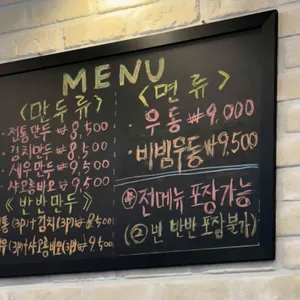 MENU
<만두류>
· 전통만두 ₩8,500
· 김치만두 ₩8,500
· 새우만두 ₩9,500
· 샤오롱바오 ₩9,500
<반반만두>
통(3P)+김치(3P) ₩8,500
우(3P)+샤오롱바오(3P) ₩9,500
<면류>
우동 ₩9,000
·비빔우동 ₩9,500
전메뉴 포장가능
(② 반반 포장불가)